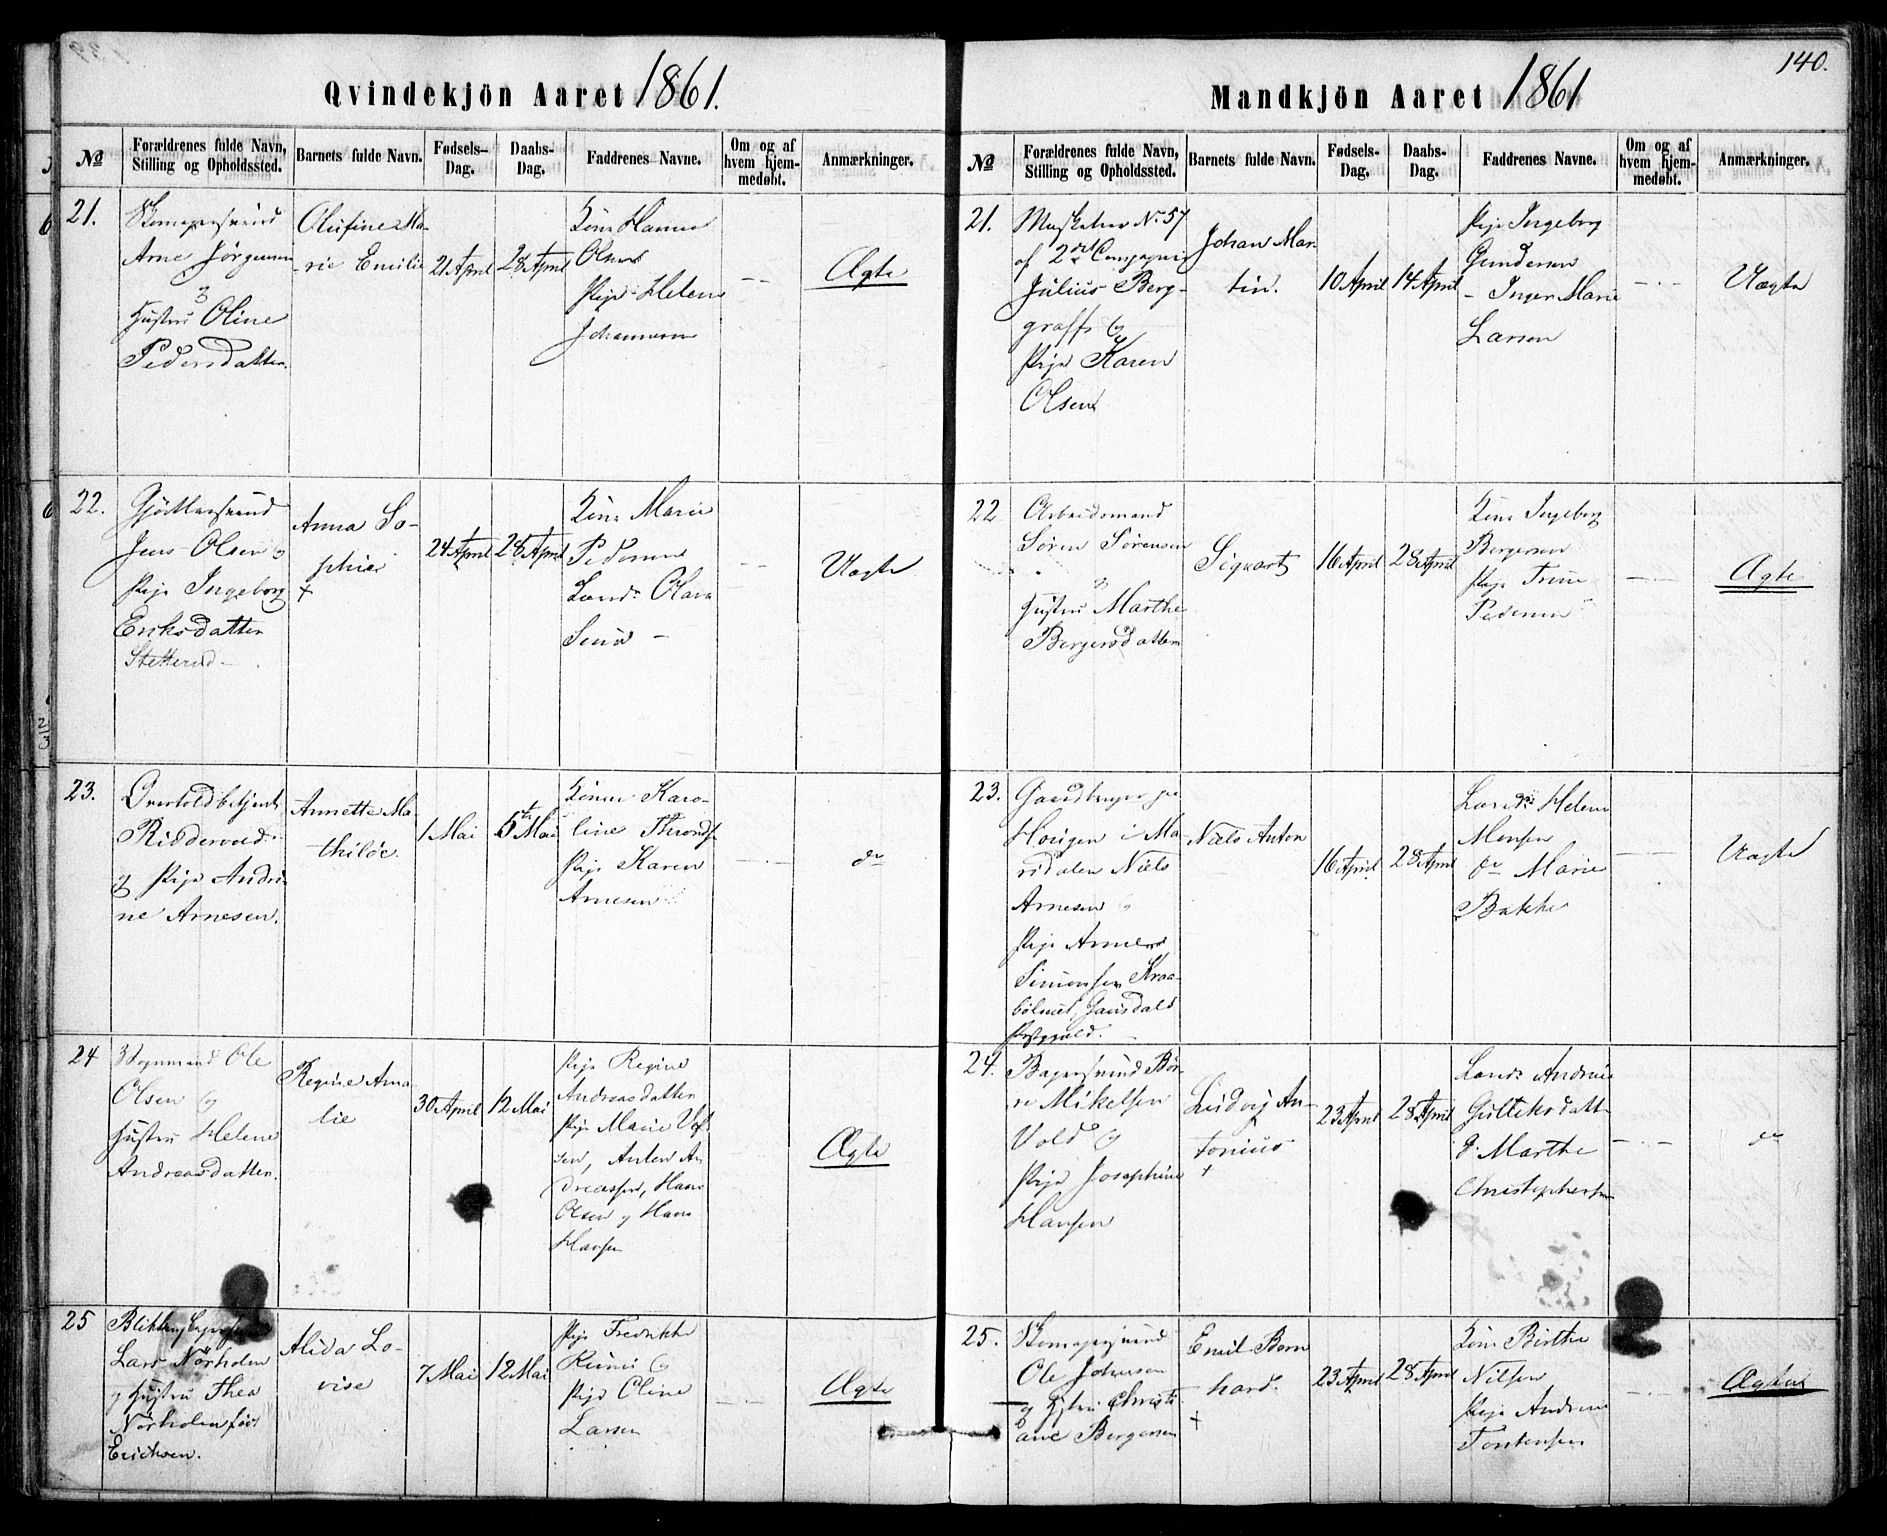 140.
Qvindekjön Aaret 1861.
No
Forældrenes fulde Navn, Stilling og Opholdssted.
Barnets fulde Navn.
Fødsels-Dag.
Daabs-Dag.
Faddrenes Navne.
Om og af hvem hjem-medøbt.
Anmærkninger.
21.
Skomagersvend
Arne Jørgensen
&
Hustru Oline
Pedersdatter.
Olufine Ma-
rie Emilie
21 April
28 April
Kone Hanna
Olsen
Pige Helene
Johannesen
Ægte
22.
Gjörtlersvend
Jens Olsen og
Pige Ingeborg
Eriksdatter
Stetterud
Anna So-
phie
+
24 April
28 April
Kone Marie
Pedersen
Olava
Uægte
23.
Overtoldbetjent
Riddervold
og Pige Andri-
ne Arnesen.
Annette Ma-
thilde.
1 Mai
5te Mai
Konen Karo-
line Throndsen
Pige Karen
Arnesen
do
24
Vognmand Ole
Olsen og
Hustru Helene
Andreasdatter.
Regine Ama-
lie
30 April
12 Mai
Pige Regine
Andreasdatter
Pige Marie
sen, Anton An
dreassen, Hans
Olsen og Hans
Hansen
Ægte
25
Lars Nörholm
og Hustru Thea
Nörholm född
Ericksen.
Alida Lo-
vise
7 Mai
12 Mai
Pige Fredrikke
og
Pige Oline
Larsen
Ægte
Mandkjön Aaret 1861
No
Forældrenes fulde Navn, Stilling og Opholdssted.
Barnets fulde Navn.
Fødsels-Dag.
Daabs-Dag.
Faddrenes Navne.
Om og af hvem hjem-medøbt.
Anmærkninger.
21.
Musketeer No 57
af 2det Compagnie
Julius Berg-
graff og
Pige Karen
Olsen
Johan Mar-
tin.
10 April
14 April
Pige Ingeborg
Gundersen
- Inger Marie
Larsen
Uægte
22
Arbeidsmand
Søren Sørensen
&
Hustru Marthe
Bergersdatter
Siguart
16 April
28 April
Kone Ingeborg
Bergersen
Pige Trine
Pedersen
Ægte
23.
Gaardbruger paa
Hougen i Ma-
ridalen Niels
Arnesen og
Pige Anne
Simensen Kraa-
bölmoet, Gausdals
Præstegjeld.
Niels Anton
16 April
28 April
Helene
Monsen
do Marie
Bakke
Uægte
24.
Bagersvend Bør-
re Mikelsen
Vold og
Pige Josephine
Hansen
Ludvig An-
tonius
+
23 April
28 April
Andrine
Gulliksdatter
P. Marthe
Christophersen
do
25.
Skomagersvend
Ole Johnsen
og Hustru Christi-
ane Bergersen
Emil Bern
hard.
+
23 April
28 April
Kone Birthe
Nilsen
Pige Andrine
Torstensen
Ægte